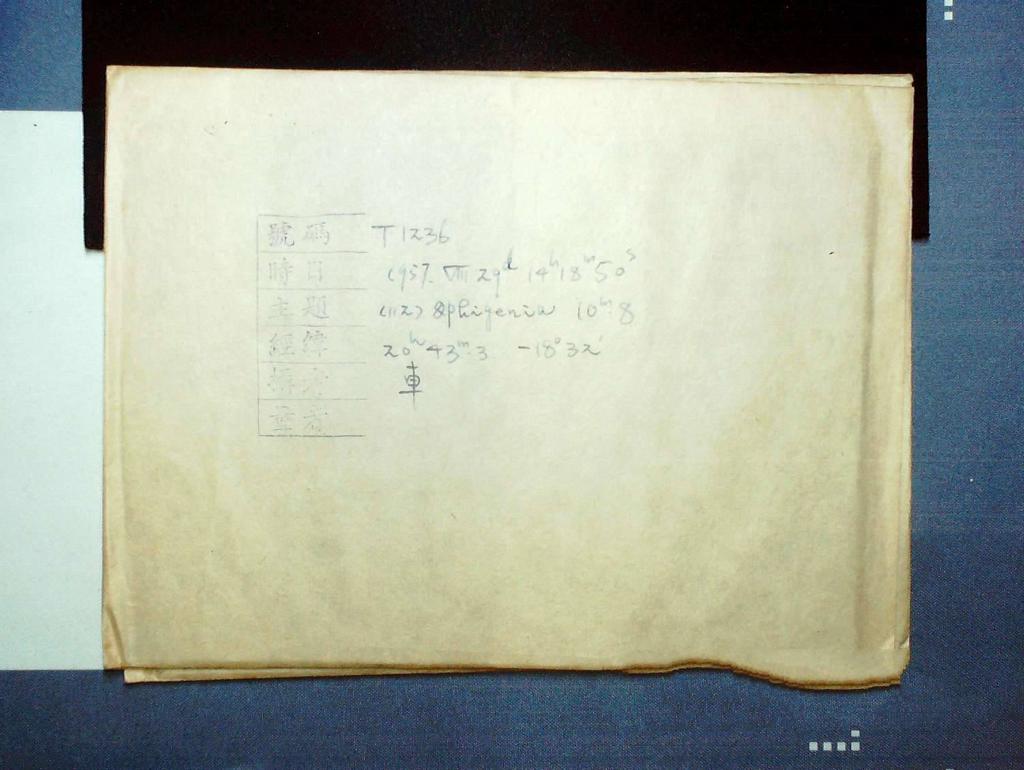 號碼 T1236
時日 1957. VIII 29d 14h18m50s
主題 (112) Iphigenia 10m.8
經緯 20h43m.3 -18°32'
車